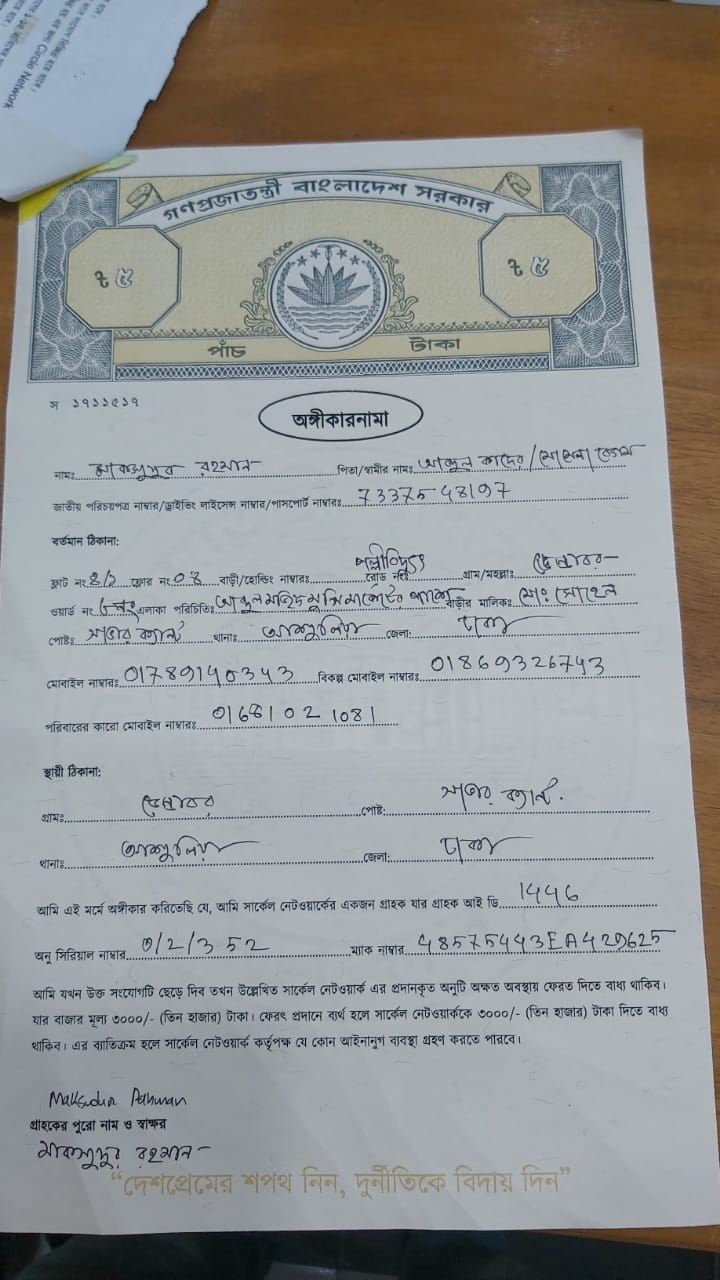 Circle Network
গণপ্রজাতন্ত্রী বাংলাদেশ সরকার
৳ ৫ ৳ ৫
পাঁচ টাকা
স ২৭১১৫১৭
অঙ্গীকারনামা
নামঃ মাকসুদুর রহমান পিতা/স্বামীর নামঃ আব্দুল কাদের /
জাতীয় পরিচয়পত্র নাম্বার/ড্রাইভিং লাইসেন্স নাম্বার/পাসপোর্ট নাম্বারঃ 7337548197
বর্তমান ঠিকানা:
ফ্লাট নং ফ্লোর নং 04 বাড়ী/হোল্ডিং নাম্বারঃ রোড নংঃ পল্লীবিদ্যুৎ গ্রাম/মহল্লাঃ
ওয়ার্ড নং এলাকা পরিচিতিঃ আব্দুল মজিদ মার্কেটের পাশে বাড়ীর মালিকঃ মোঃ সোহেল
পোষ্টঃ থানাঃ আশুলিয়া জেলা: ঢাকা
মোবাইল নাম্বারঃ 01789140343 বিকল্প মোবাইল নাম্বারঃ 01869326743
পরিবারের কারো মোবাইল নাম্বারঃ 01681021081
স্থায়ী ঠিকানা:
গ্রামঃ পোষ্ট:
থানাঃ আশুলিয়া জেলা: ঢাকা
আমি এই মর্মে অঙ্গীকার করিতেছি যে, আমি সার্কেল নেটওয়ার্কের একজন গ্রাহক যার গ্রাহক আই ডি 1446
অনু সিরিয়াল নাম্বার 0/2/352 ম্যাক নাম্বার 48575443EA429625
আমি যখন উক্ত সংযোগটি ছেড়ে দিব তখন উল্লেখিত সার্কেল নেটওয়ার্ক এর প্রদানকৃত অনুটি অক্ষত অবস্থায় ফেরত দিতে বাধ্য থাকিব।
যার বাজার মূল্য ৩০০০/- (তিন হাজার) টাকা। ফেরৎ প্রদানে ব্যর্থ হলে সার্কেল নেটওয়ার্ককে ৩০০০/- (তিন হাজার) টাকা দিতে বাধ্য
থাকিব। এর ব্যতিক্রম হলে সার্কেল নেটওয়ার্ক কর্তৃপক্ষ যে কোন আইনানুগ ব্যবস্থা গ্রহণ করতে পারবে।
Maksudur Rahman
গ্রাহকের পুরো নাম ও স্বাক্ষর
মাকসুদুর রহমান
“দেশপ্রেমের শপথ নিন, দুর্নীতিকে বিদায় দিন”